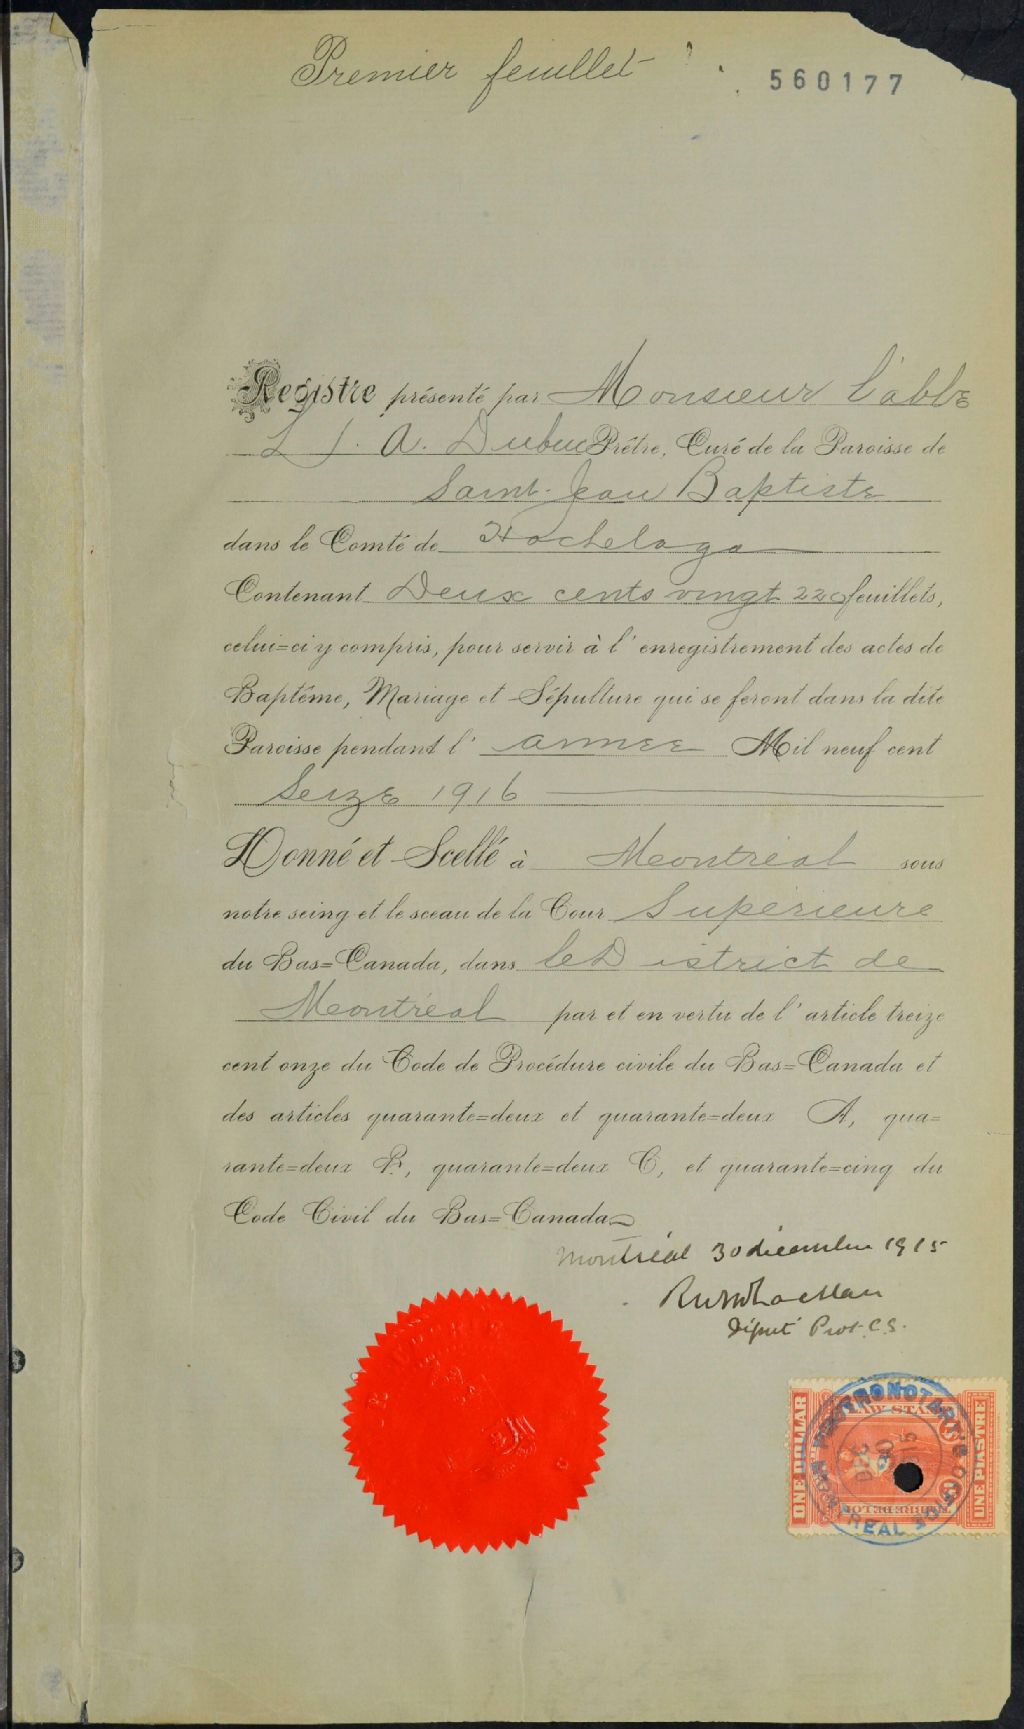 Premier feuillet
560177
Registre présenté par Monsieur l'abbé
L J. A. Dubuc Prêtre, Curé de la Paroisse de
Saint-Jean Baptiste
dans le Comté de Hochelaga
Contenant Deux cents vingt 220 feuillets,
celui=ci y compris, pour servir à l'enregistrement des actes de
Baptême, Mariage et Sépulture qui se feront dans la dite
Paroisse pendant l'année Mil neuf cent
Seize 1916
Donné et Scellé à Montréal sous
notre seing et le sceau de la Cour Supérieure
du Bas=Canada, dans le District de
Montréal par et en vertu de l'article treize
cent onze du Code de Procédure civile du Bas=Canada et
des articles quarante=deux et quarante=deux A, qua=
rante=deux B, quarante=deux C, et quarante=cinq du
Code Civil du Bas=Canada
Montréal 30 décembre 1915
Député Prot. C.S.
ONE DOLLAR
LAW STAMP
UNE PIASTRE
PROTHONOTARY'S OFFICE
DEC
30
15
MONTREAL